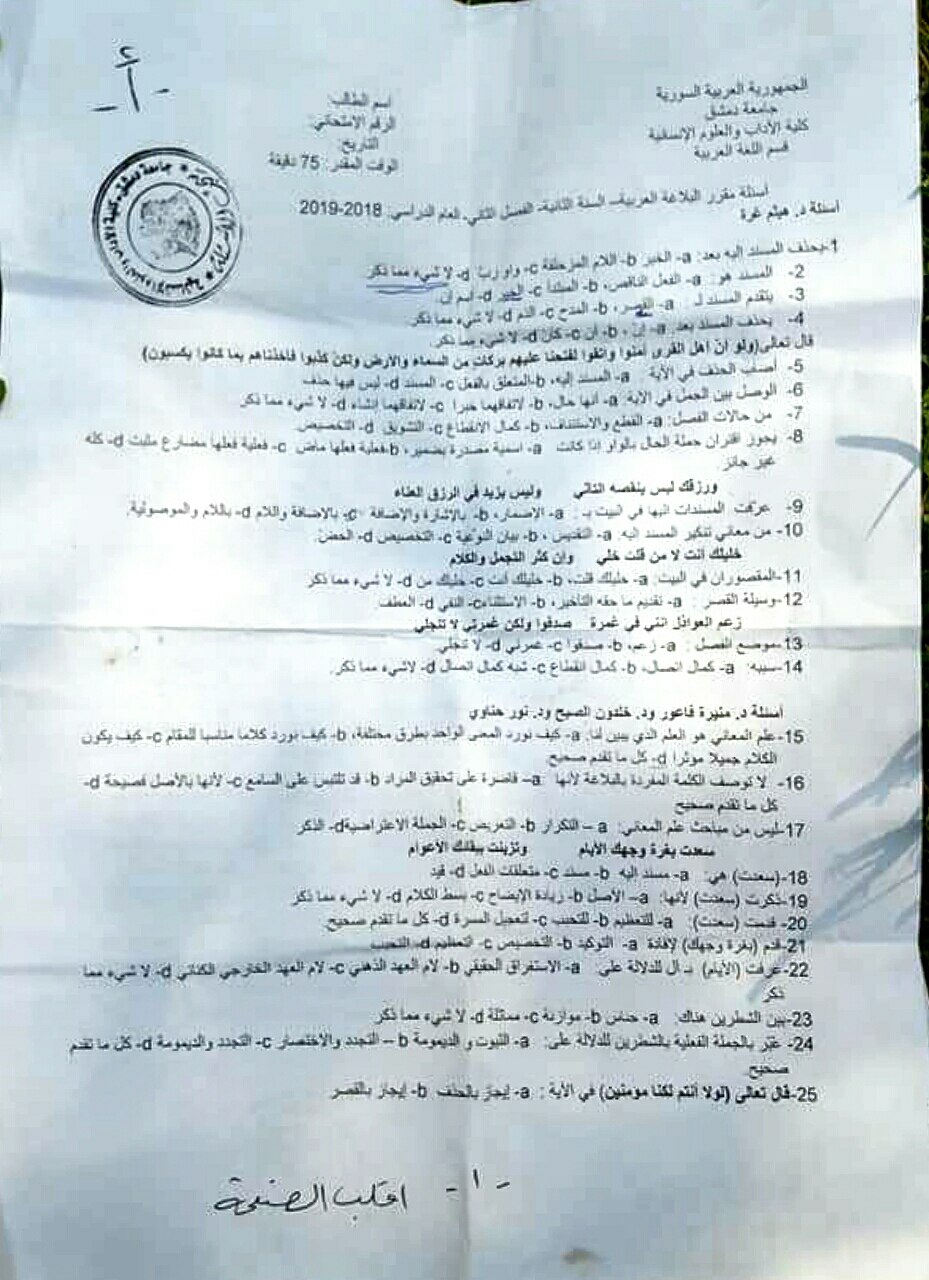 أ
الجمهورية العربية السورية
جامعة دمشق
كلية الآداب والعلوم الإنسانية
قسم اللغة العربية
اسم الطالب:
الرقم الامتحاني:
التاريخ:
الوقت المقدر: 75 دقيقة
أسئلة مقرر البلاغة العربية– السنة الثانية- الفصل الثاني- العام الدراسي: 2018-2019
أسئلة د. هيثم غرة
1-يحذف المسند إليه بعد: a- الخبر b- اللام المزحلقة c- واو ربّ d- لا شيء مما ذكر
2- المسند هو: a- الفعل الناقص، b- المبتدأ c- الخبر d- اسم إن.
3- يتقدم المسند لـ a- القصر، b- المدح c- الذم d- لا شيء مما ذكر.
4- يحذف المسند بعد: a- إنّ، b- أن c- كأن d- لا شيء مما ذكر.
قال تعالى(ولو أن أهل القرى آمنوا واتقوا لفتحنا عليهم بركات من السماء والارض ولكن كذبوا فاخذناهم بما كانوا يكسبون)
5- أصاب الحذف في الآية : a- المسند إليه، b-المتعلق بالفعل c- المسند d- ليس فيها حذف
6- الوصل بين الجمل في الآية: a- أنها حال، b- لاتفاقهما خبرا c- لاتفاقهما إنشاء d- لا شيء مما ذكر
7- من حالات الفصل: a- القطع والاستئناف، b- كمال الانقطاع c- التشويق d- التخصيص.
8- يجوز اقتران جملة الحال بالواو إذا كانت a- اسمية مصدرة بضمير، b-فعلية فعلها ماض c- فعلية فعلها مضارع مثبت d- كله
غير جائز.
ورزقك ليس ينقصه التأني وليس يزيد في الرزق العناء
9- عرفت المسندات إليها في البيت بـ : a- الاضمار، b- بالإشارة والإضافة c- بالإضافة واللام d- باللام والموصولية.
10- من معاني تنكير المسند إليه: a- التقديس ، b- بيان النوعية c- التخصيص d- الحض
خليلك أنت لا من قلت خلي وإن كثر التجمل والكلام
11-المقصوران في البيت: a- خليلك قلت، b- خليلك أنت c- خليك من d- لا شيء مما ذكر
12-وسيلة القصر : a- تقديم ما حقه التأخير، b- الاستثناءc- النفي d- العطف.
زعم العواذل انني في غمرة صدقوا ولكن غمرتي لا تنجلي
13-موضع الفصل : a- زعم، b- صدقوا c- غمرتي d- لا تنجلي.
14-سببه: a- كمال اتصال، b- كمال انقطاع c- شبه كمال اتصال d- لاشيء مما ذكر.
أسئلة د. منيرة فاعور ود. خلدون الصبح ود. نور حناوي
15-علم المعاني هو العلم الذي يبين لنا: a- كيف نورد المعنى الواحد بطرق مختلفة، b- كيف نورد كلاما مناسبا للمقام c- كيف يكون
الكلام جميلا موثرا d- كل ما تقدم صحيح.
16- لا توصف الكلمة المفردة بالبلاغة لأنها a– قاصرة على تحقيق المراد b- قد تلتبس على السامع c- لأنها بالأصل فصيحة d-
كل ما تقدم صحيح
17-ليس من مباحث علم المعاني: a – التكرار b- التعريض c- الجملة الاعتراضيةd- الذكر
سعدت بغرة وجهك الأيام وتزينت ببقائك الأعوام
18-(سعدت) هي: a- مسند اليه b- مسند c- متعلقات الفعل d- قيد
19-ذكرت (سعدت) لأنها: a– الأصل b- زيادة الإيضاح c- بسط الكلام d- لا شيء مما ذكر
20- قدمت (سعدت): a– للتعظيم b- للتحبب c- لتعجيل المسرة d- كل ما تقدم صحيح.
21-قدم (بغرة وجهك) لإفادة a- التوكيد b- التخصيص c- التعظيم d- التحبب
22-عرفت (الأيام) بـ ال للدلالة على: a- الاستغراق الحقيقي b- لام العهد الذهني c- لام العهد الخارجي الكنائي d- لا شيء مما
ذكر
23-بين الشطرين هناك: a- جناس b- موازنة c- مماثلة d- لا شيء مما ذكر
24- عبّر بالجملة الفعلية بالشطرين للدلالة على: a- الثبوت و الديمومة b – التجدد والاختصار c- التجدد والديمومة d- كل ما تقدم
صحيح.
25-قال تعالى (لولا أنتم لكنا مؤمنين) في الآية : a- إيجاز بالحذف b- إيجاز بالقصر
- ١ - اقلب الصفحة